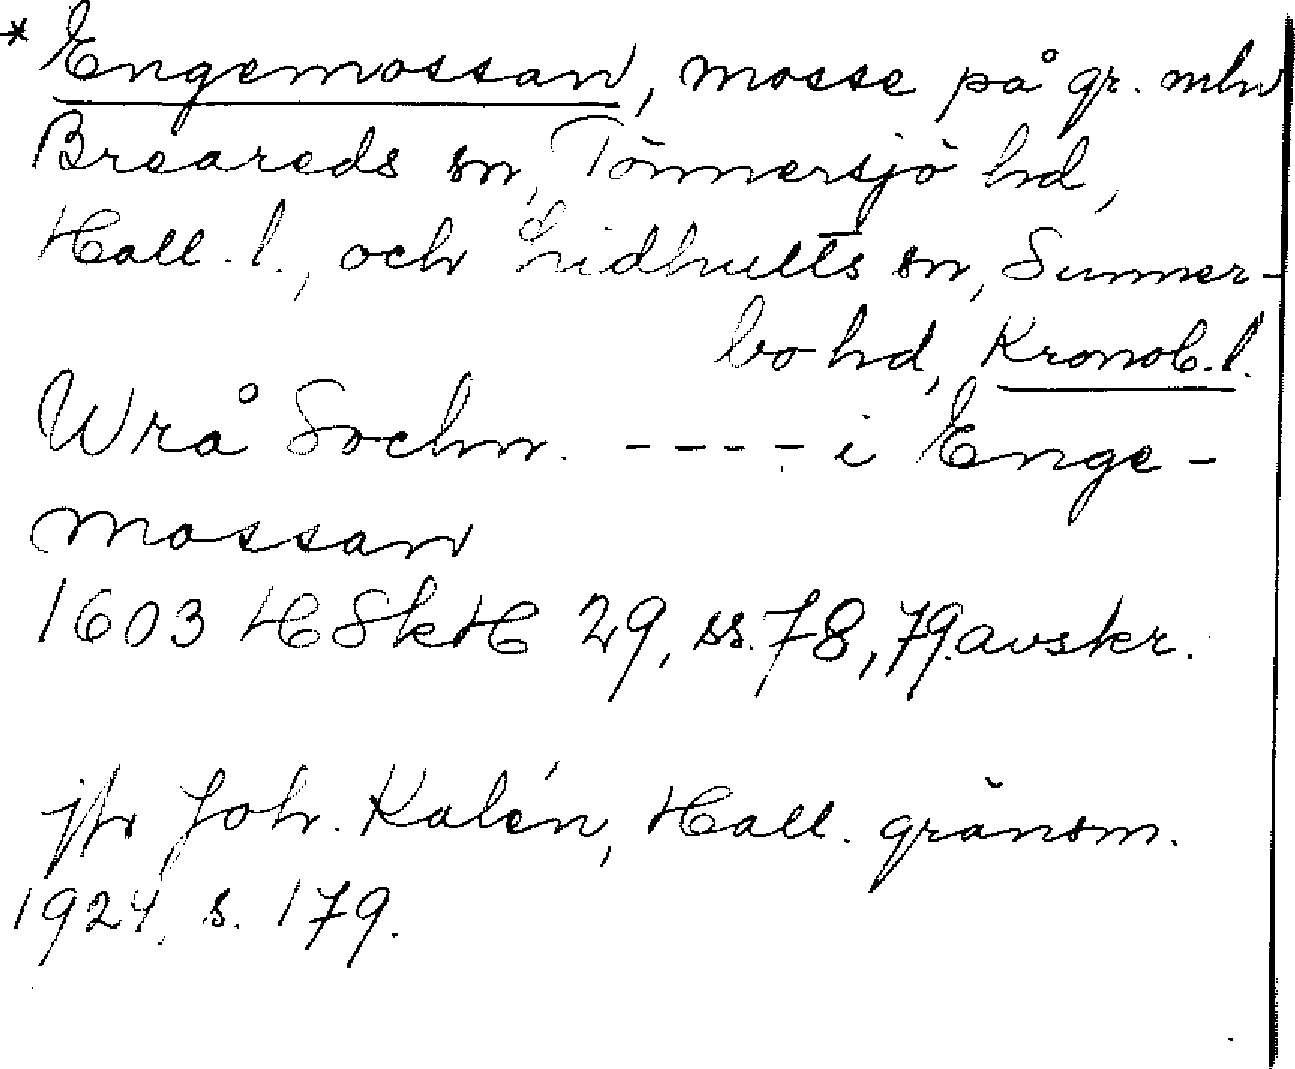 * Engemossan, mosse på gr. mln
Breareds sn, Tönnersjö hd,
Hall. l., och Lidhults sn, Sunner-
bo hd, Kronob. l.
Wrå Sochn. ---- i Enge-
mossan
1603 HSkH 29, ss. 78, 79. avskr.
jfr Joh. Kalén, Hall. gränsm.
1924, s. 179.